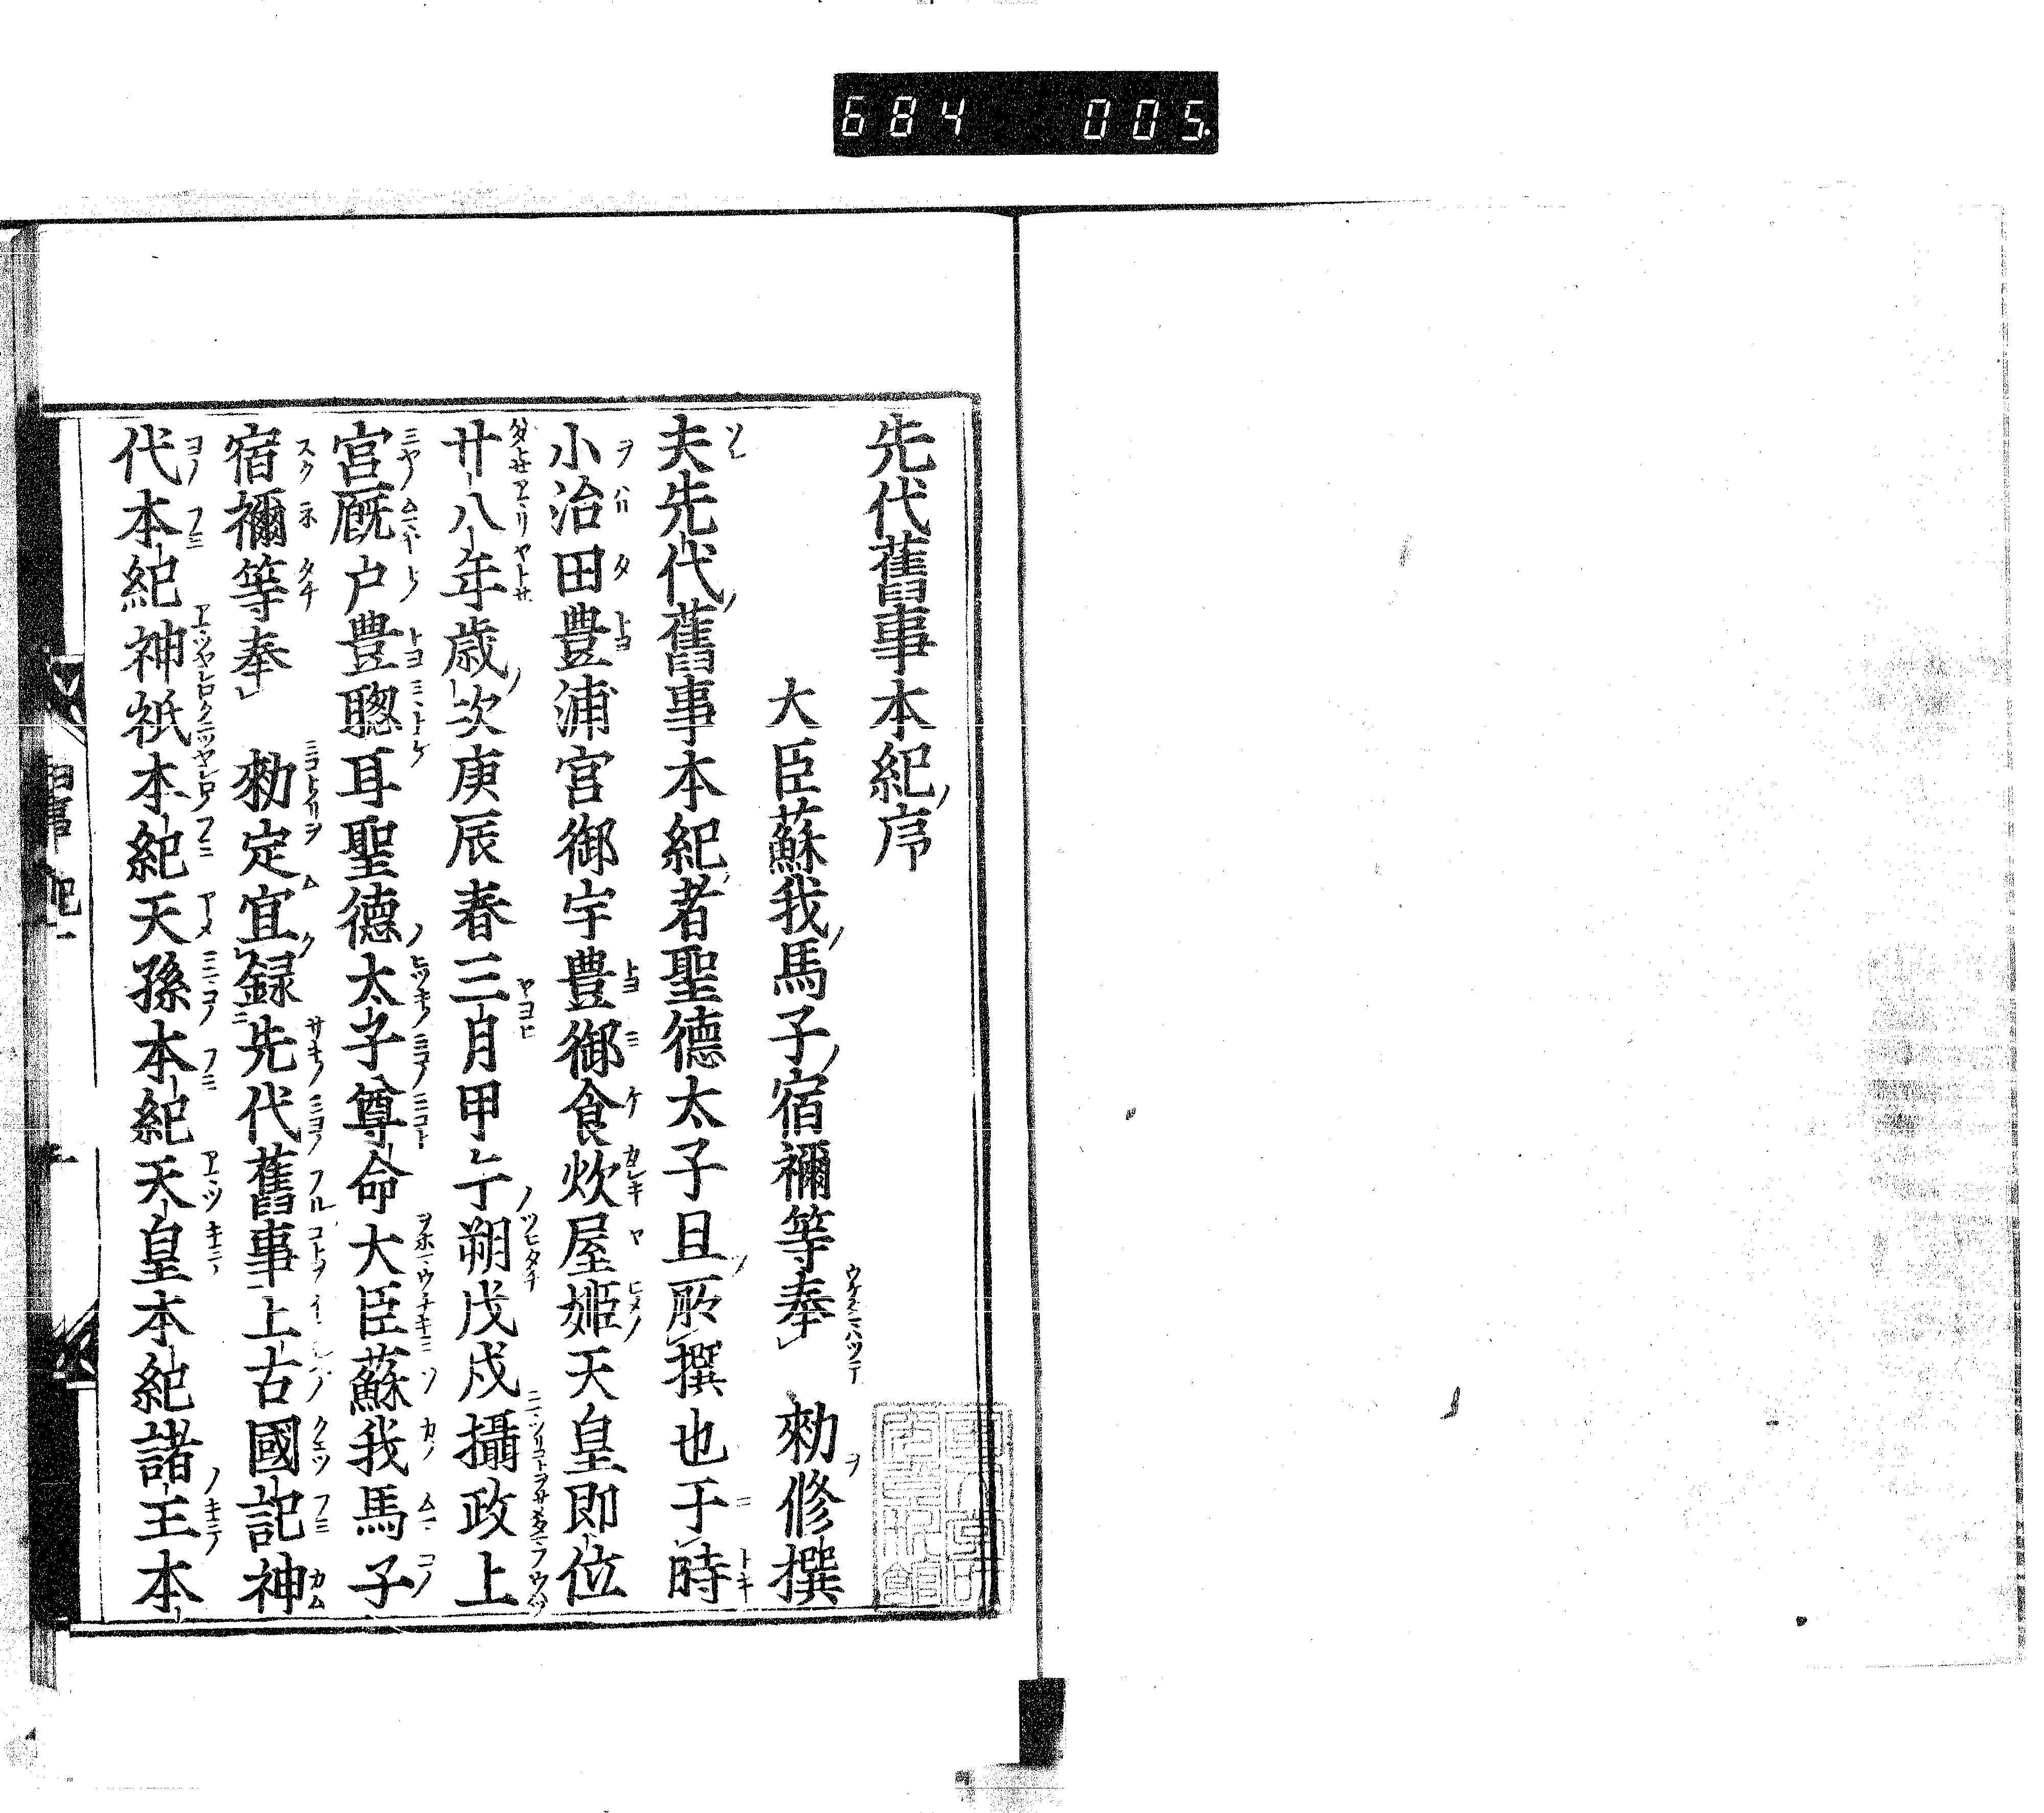 684 005
先代舊事本紀序
大臣蘇我馬子宿禰等奉 勑修撰
夫先代舊事本紀者聖德太子且所撰也于時
小治田豊浦宮御宇豊御食炊屋姬天皇即位
廿八年歳次庚辰春三月甲午朔戊戌攝政上
宮厩戸豊聰耳聖德太子尊命大臣蘇我馬子
宿禰等奉 勑定宜録先代舊事上古國記神
代本紀神祇本紀天孫本紀天皇本紀諸王本